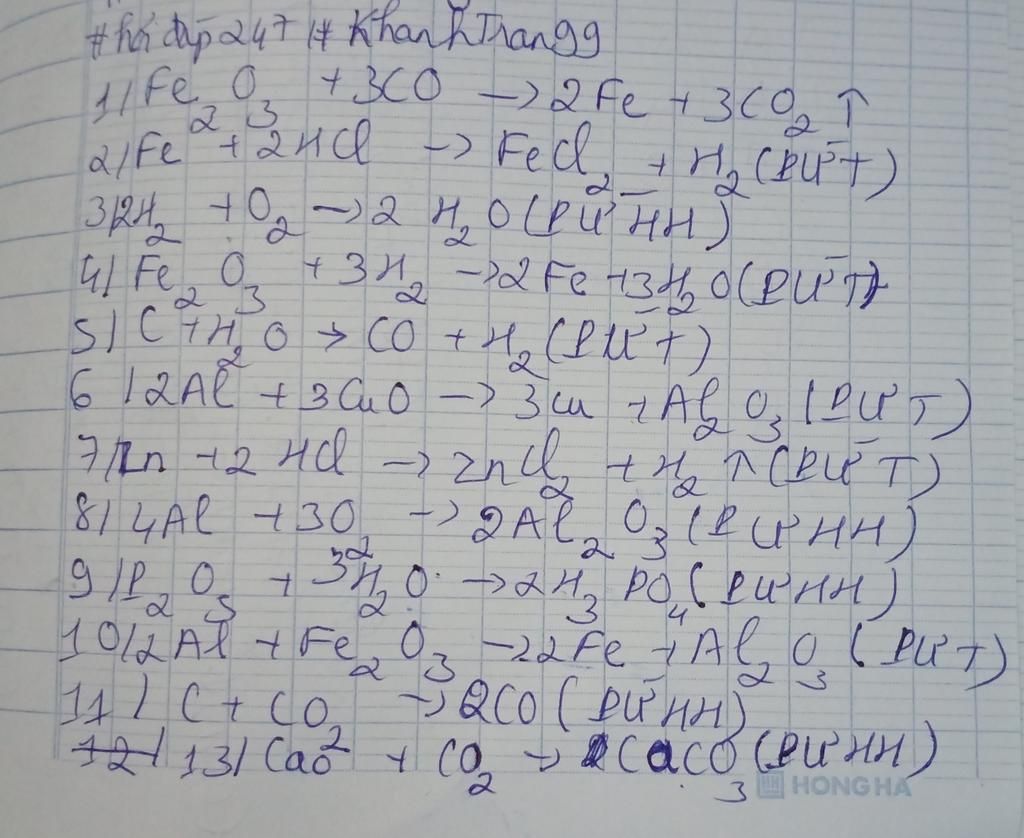 #hỏi đáp 247 | # KhanhTran99
1) Fe₂O₃ + 3CO → 2Fe + 3CO₂ ↑
2) Fe + 2HCl → FeCl₂ + H₂ (PƯT)
3) 2H₂ + O₂ → 2 H₂O (PƯHH)
4) Fe₂O₃ + 3H₂ → 2Fe + 3H₂O (PƯT)
5) C + H₂O → CO + H₂ (PƯT)
6) 2Al + 3CuO → 3Cu + Al₂O₃ (PƯT)
7) Zn + 2HCl → ZnCl₂ + H₂ ↑ (PƯT)
8) 4Al + 3O₂ → 2Al₂O₃ (PƯHH)
9) P₂O₅ + 3H₂O → 2H₃PO₄ (PƯHH)
10) 2Al + Fe₂O₃ → 2Fe + Al₂O₃ (PƯT)
11) C + CO₂ → 2CO (PƯHH)
12) 13) CaO + CO₂ → CaCO₃ (PƯHH)
HH HONG HA